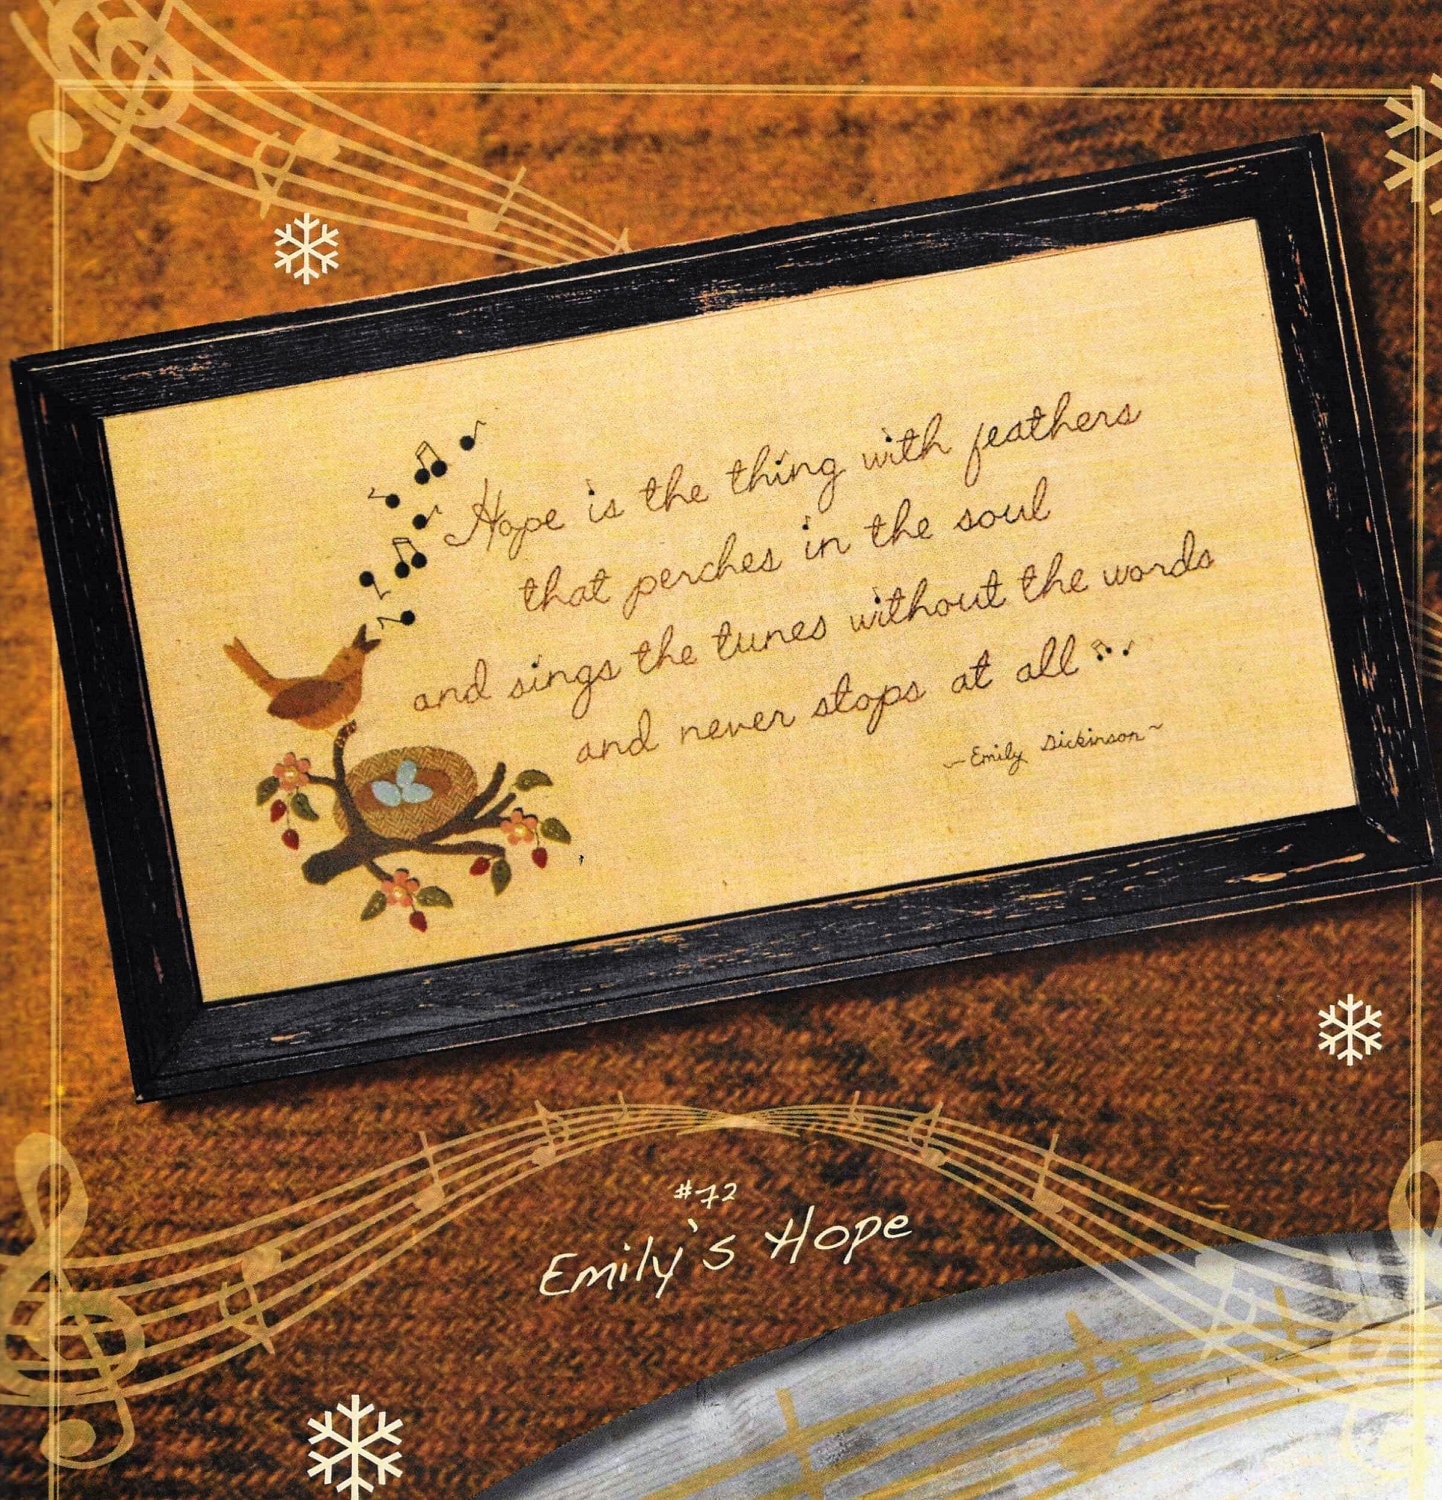 Hope is the thing with feathers
that perches in the soul
and sings the tunes without the words
and never stops at all
~Emily Dickinson~
#72
Emily's Hope